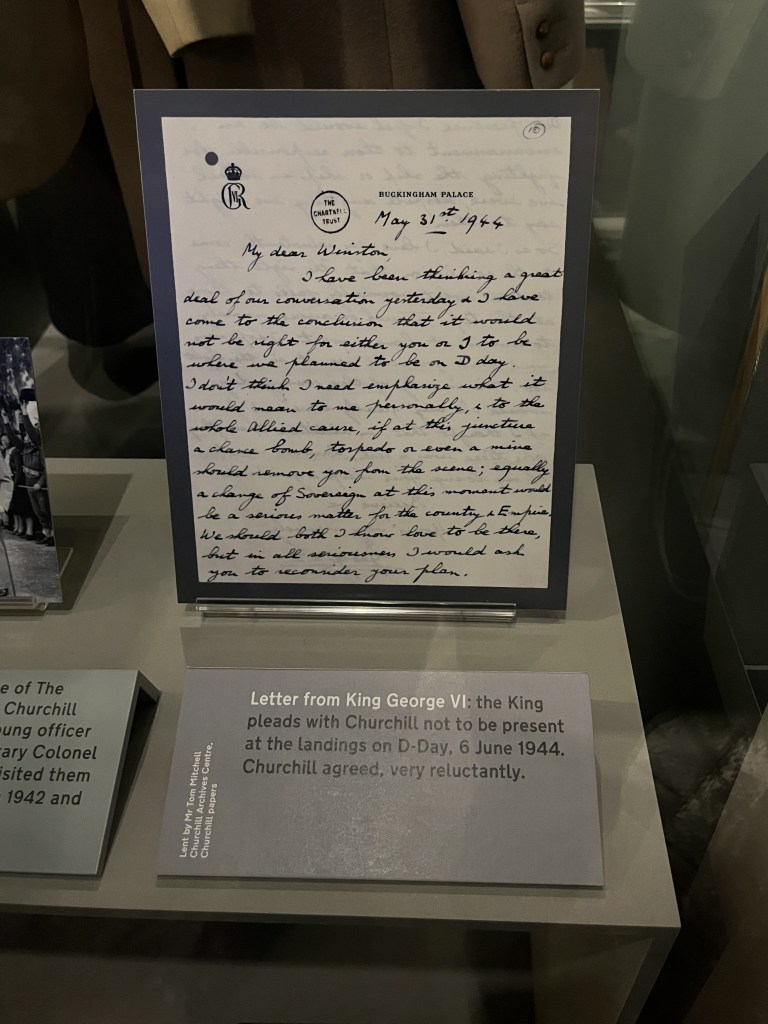 10
BUCKINGHAM PALACE
THE
CHARTWELL
TRUST
May 31st 1944
My dear Winston,
I have been thinking a great
deal of our conversation yesterday & I have
come to the conclusion that it would
not be right for either you or I to be
where we planned to be on D day.
I don't think I need emphasize what it
would mean to me personally, & to the
whole Allied cause, if at this juncture
a chance bomb, torpedo or even a mine
should remove you from the scene; equally
a change of Sovereign at this moment would
be a serious matter for the country & Empire.
We should both I know love to be there,
but in all seriousness I would ask
you to reconsider your plan.
e of The
Churchill
ung officer
rary Colonel
isited them
1942 and
Letter from King George VI: the King
pleads with Churchill not to be present
at the landings on D-Day, 6 June 1944.
Churchill agreed, very reluctantly.
Lent by Mr Tom Mitchell
Churchill Archives Centre,
Churchill papers